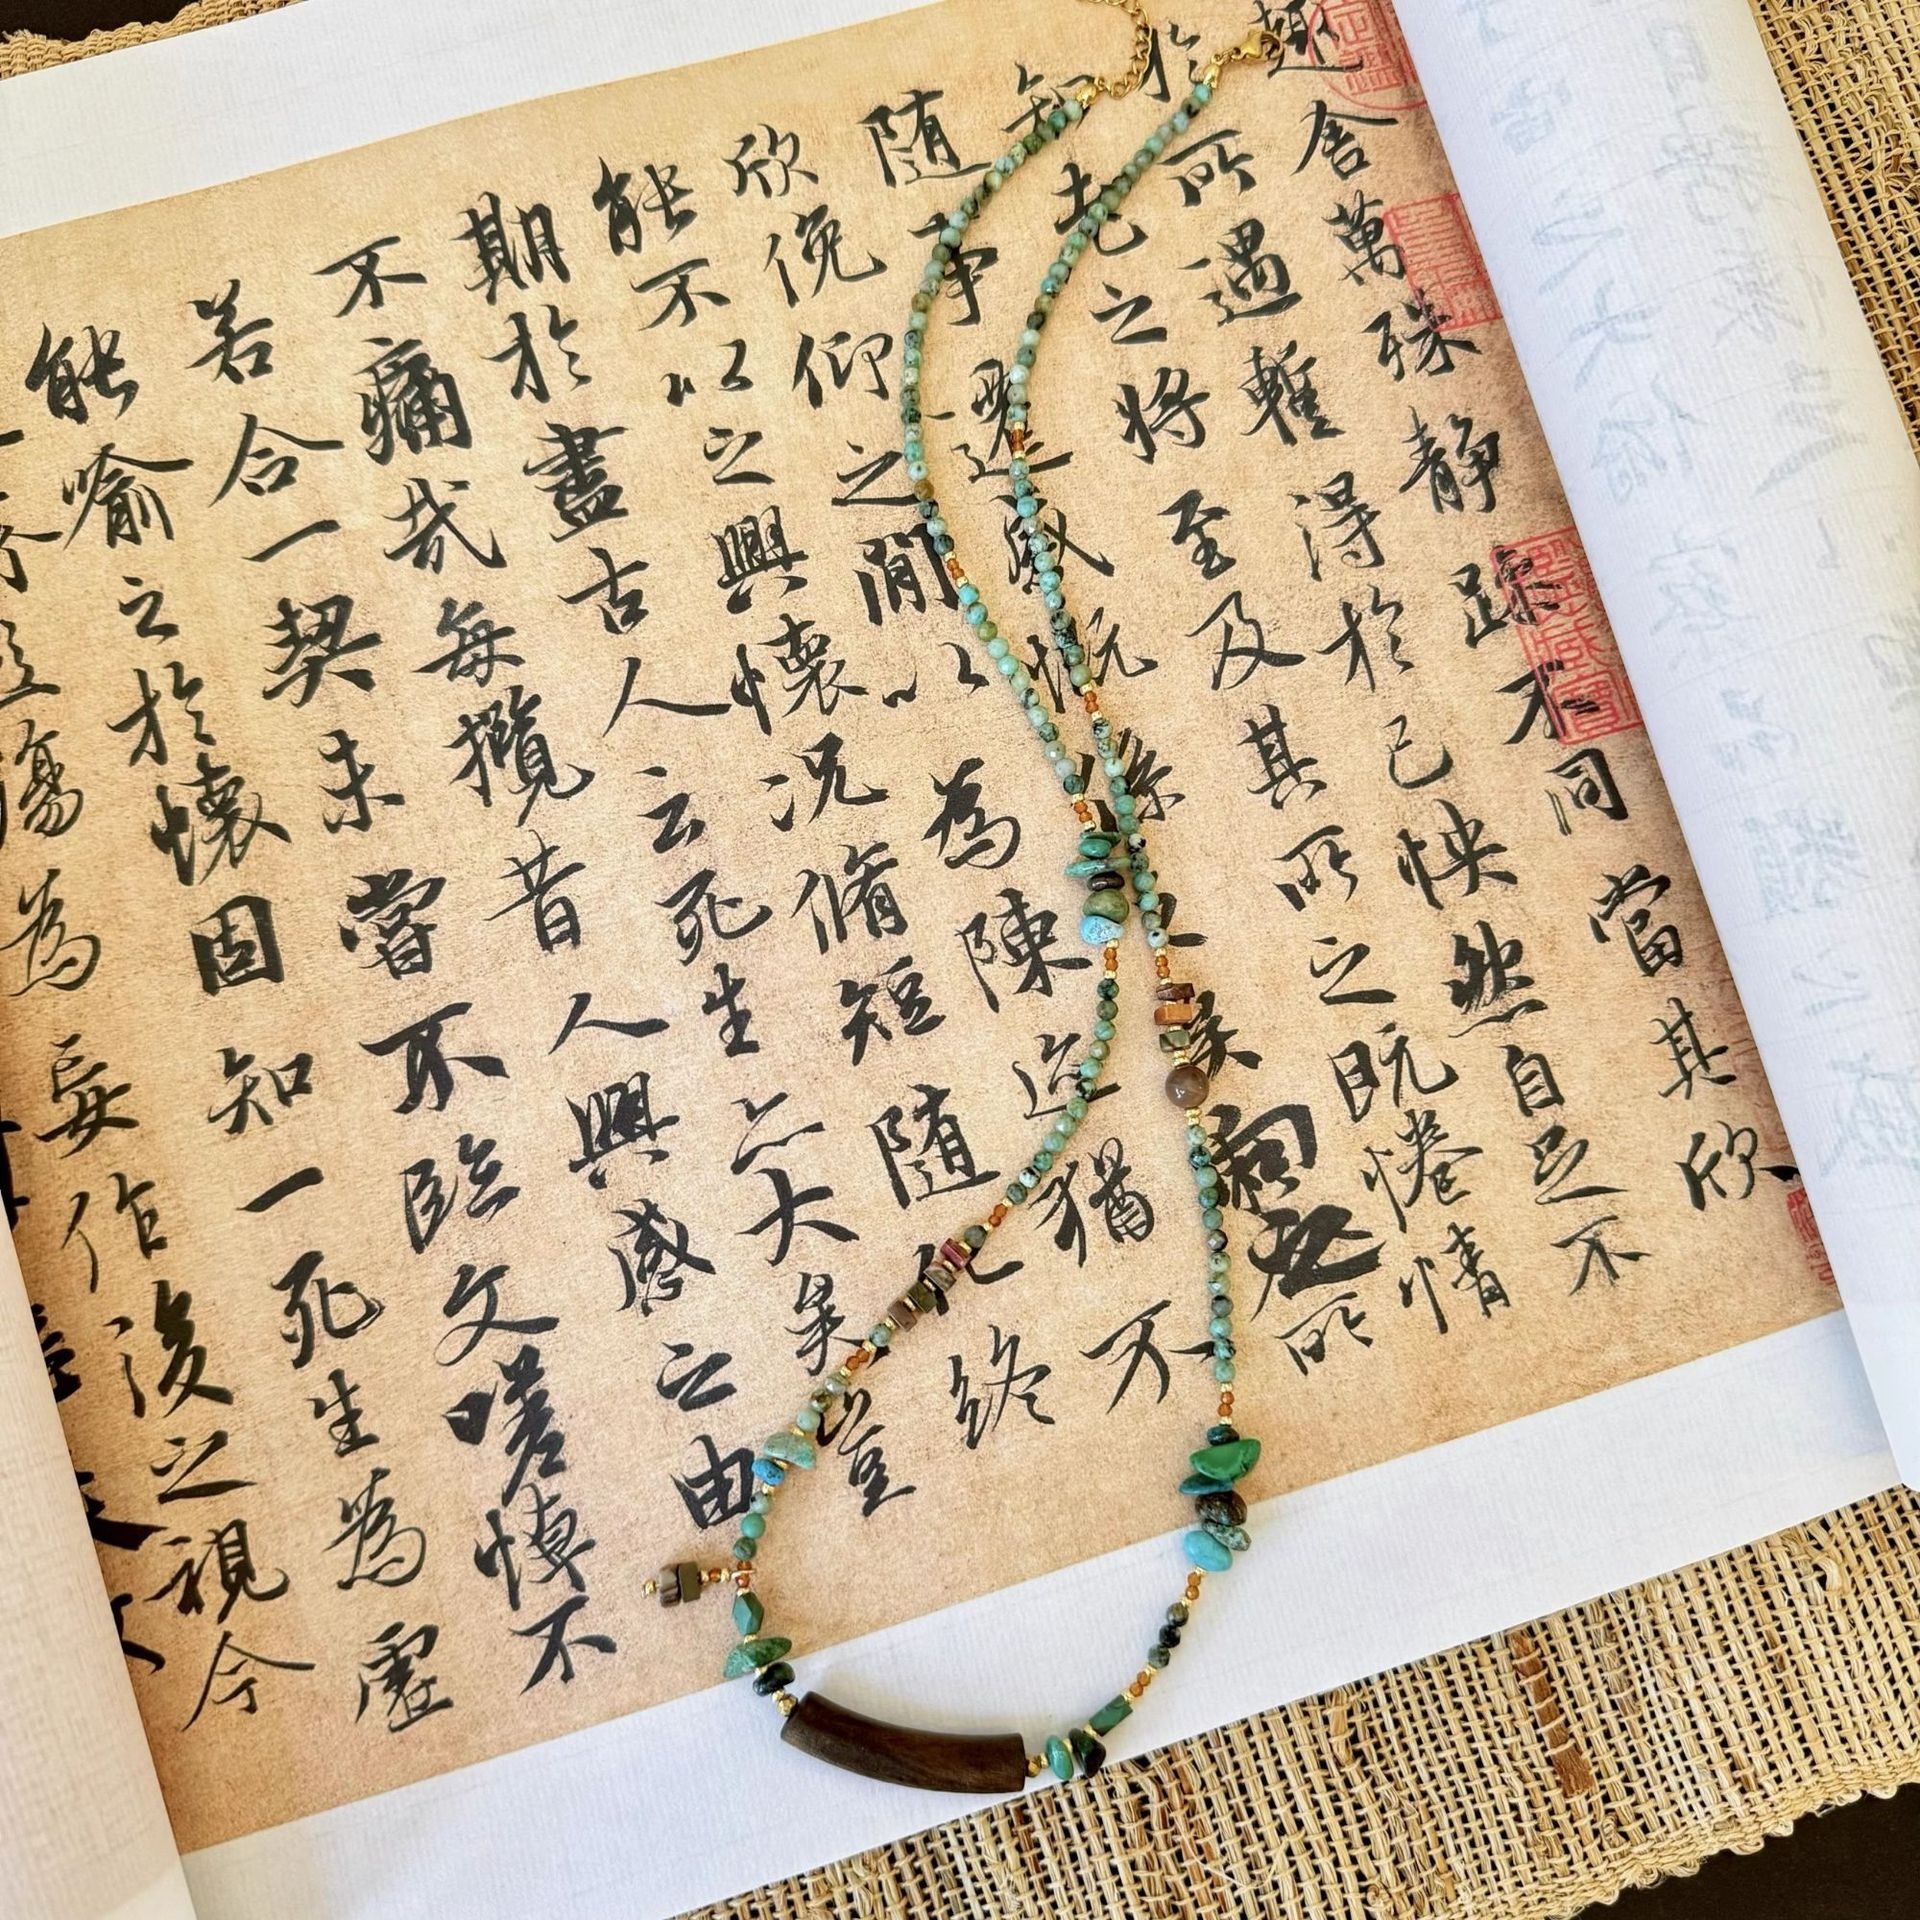 趣舍萬殊静躁不同當其欣
於所遇蹔得於己怏然自足不
知老之將至及其所之既惓情
随事遷感慨係之矣向之所
欣俛仰之閒以為陳迹猶不
能不以之興懷況脩短随化終
期於盡古人云死生亦大矣豈
不痛哉每攬昔人興感之由
若合一契未嘗不臨文嗟悼不
能喻之於懷固知一死生為虛
殤為妄作後之視今